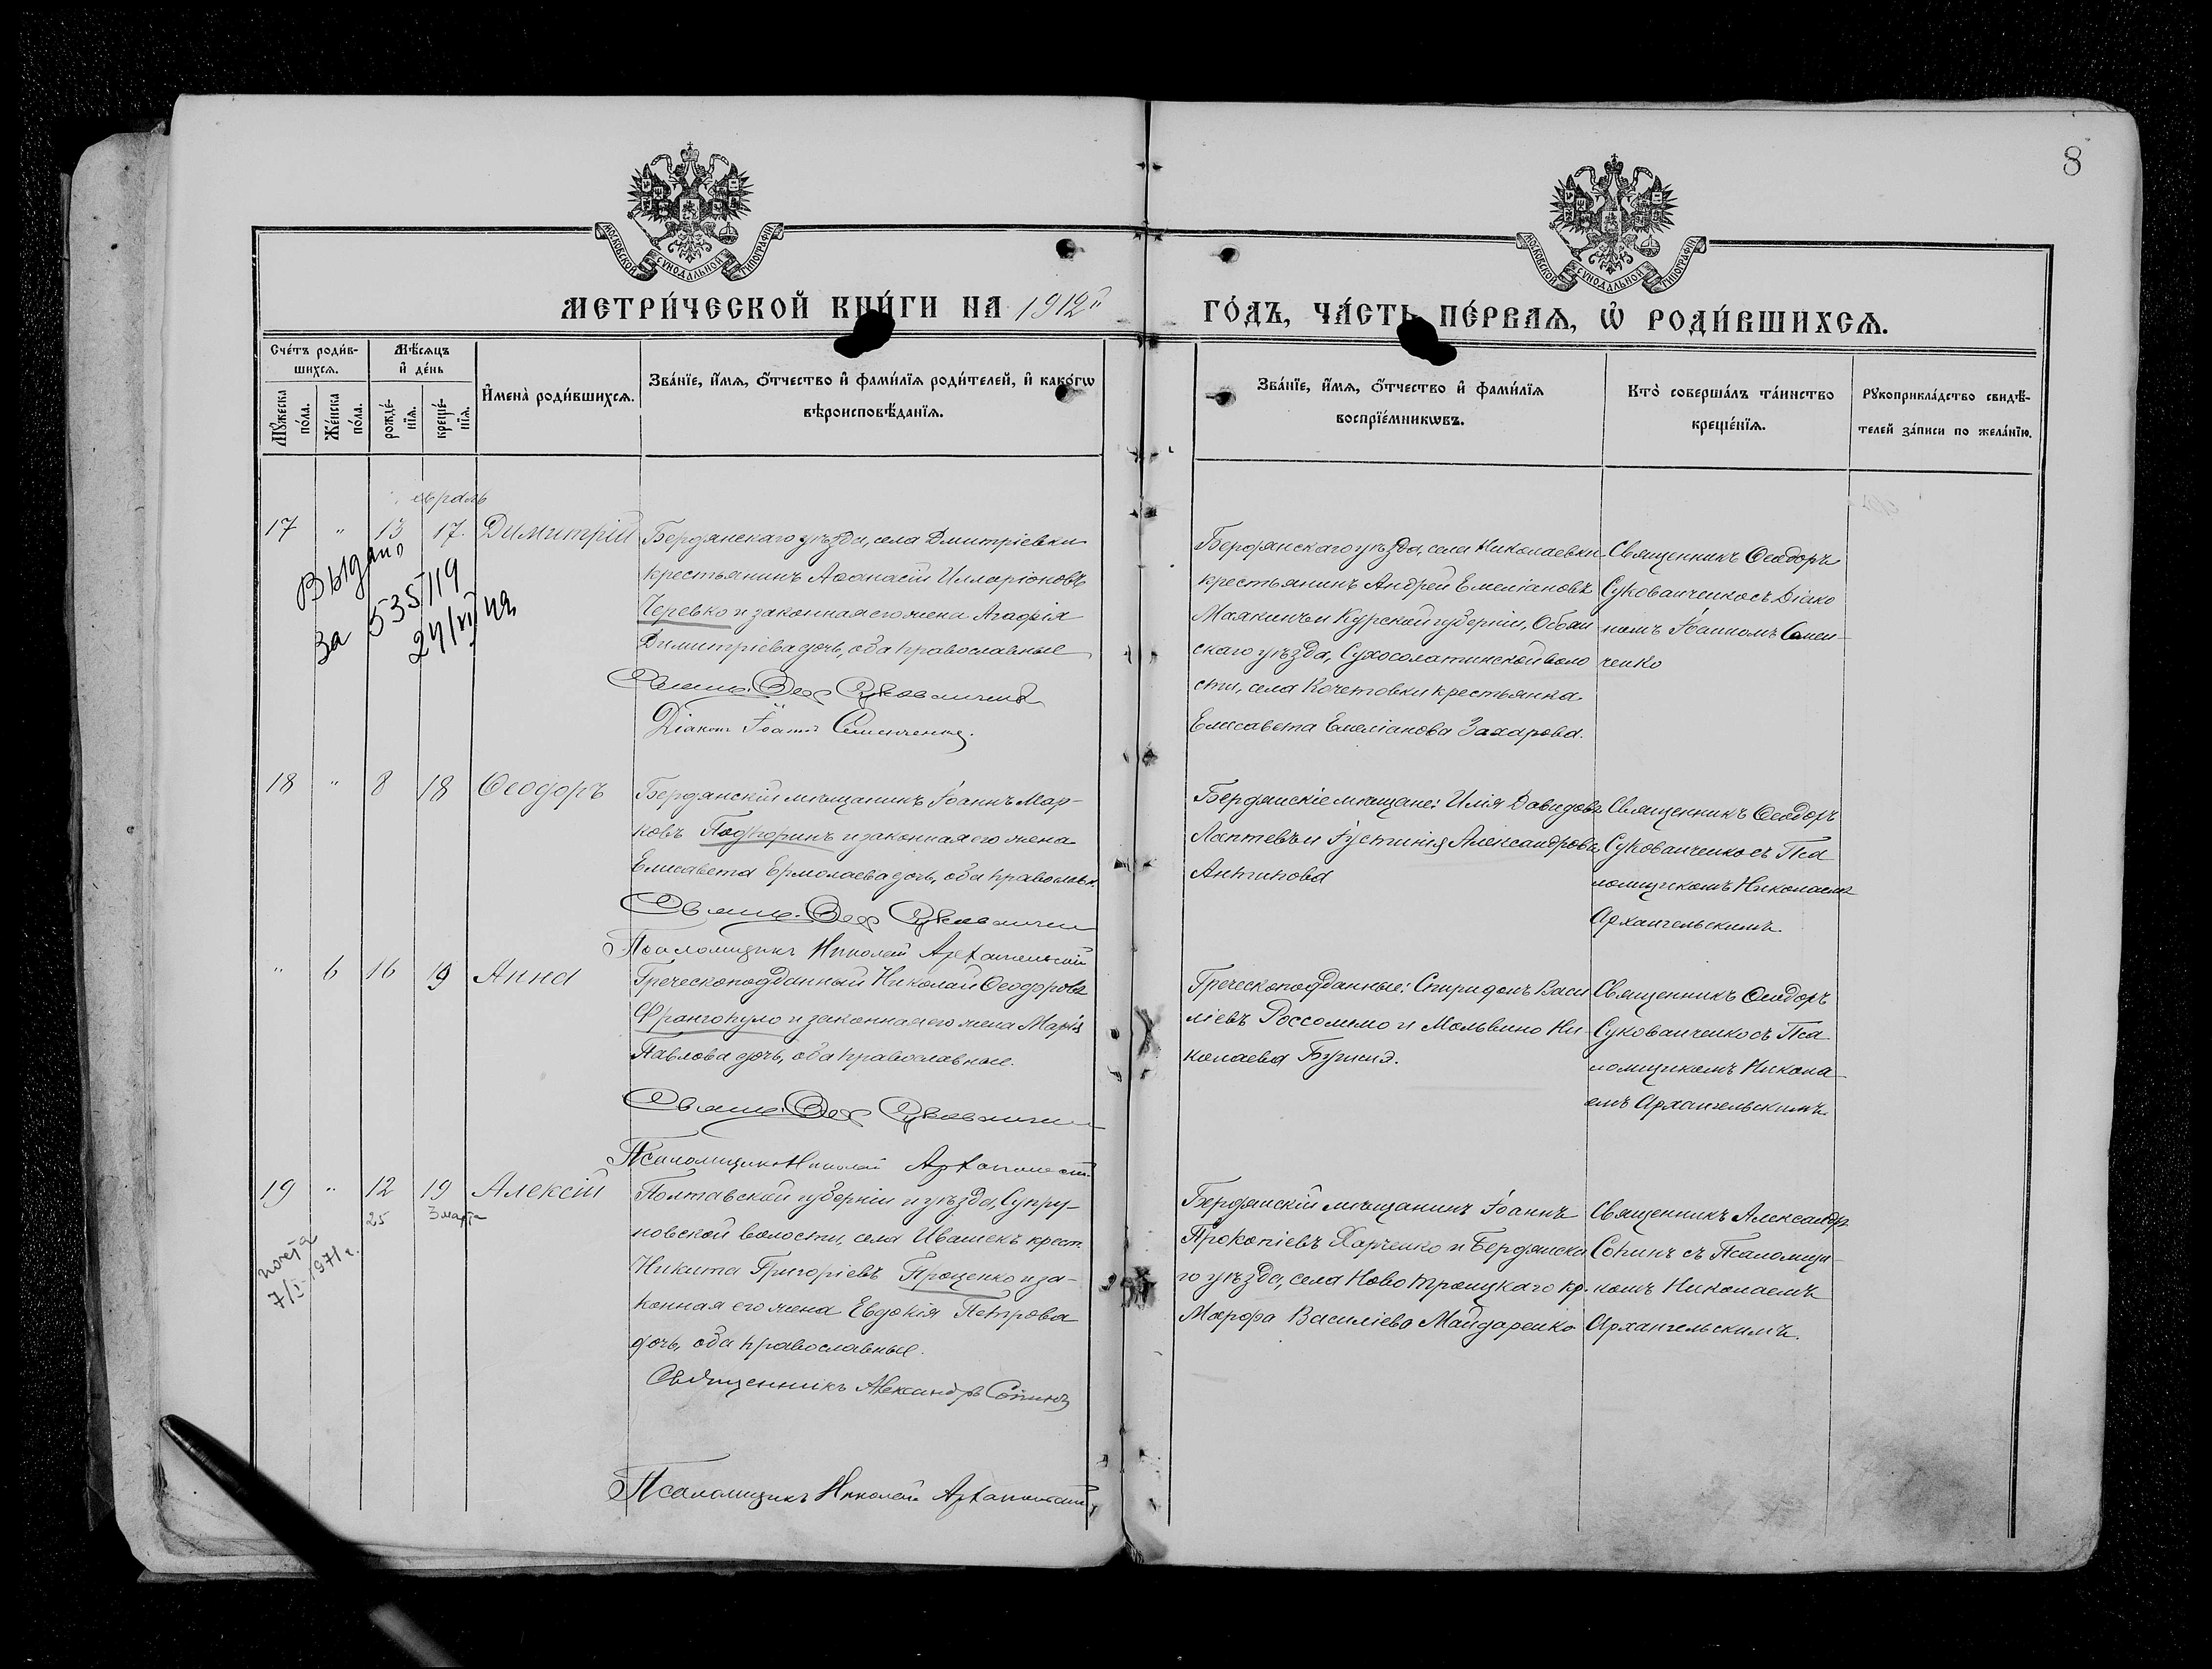 8
МОСКОВСКОЙ СѴНОДАЛЬНОЙ ТИПОГРАФІИ
МОСКОВСКОЙ СѴНОДАЛЬНОЙ ТИПОГРАФІИ
МЕТРИ́ЧЕСКОЙ КНИ́ГИ НА 1912й
ГО́ДЪ, ЧА́СТЬ ПЕ́РВАѦ, Ѡ҆ РОДИ́ВШИХСѦ.
Сче́тъ роди́в-
шихсѧ.
Мꙋ́жеска
по́ла.
Же́нска
по́ла.
Мѣ́сѧцъ
и҆ де́нь
рожде́-
нїѧ.
креще́-
нїѧ.
И҆мена̀ роди́вшихсѧ.
Зва́нїе, и҆́мѧ, ѻ҆́тчество и҆ фами́лїѧ роди́телей, и҆ како́гѡ
вѣроисповѣ́данїѧ.
Зва́нїе, и҆́мѧ, ѻ҆́тчество и҆ фами́лїѧ
воспрїе́мникѡвъ.
Кто̀ соверша́лъ та́инство
креще́нїѧ.
Рꙋкоприкла́дство свидѣ́-
телей за́писи по жела́нїю.
враль
17 " 13 17. Димитрій
Бердянскаго уѣзда, села Дмитріевки
крестьянинъ Аѳанасій Илларіоновъ
Черевко и законная его жена Агафія
Димитріева дочь, оба православные
Діаконъ Іоаннъ Семенченко.
Бердянскаго уѣзда, села Николаевки
крестьянинъ Андрей Емеліановъ
Маякинъ и Курской губерніи, Обоян
скаго уѣзда, Сухосолатинской воло
сти, села Кочетовки крестьянка
Елисавета Емеліанова Захарова.
Священникъ Ѳеодоръ
Сукованченко съ Діако
номъ Іоанномъ Семен-
ченко
Выдано
за 535/19
18 " 8 18 Ѳеодоръ
Бердянскій мѣщанинъ Іоаннъ Мар-
ковъ Подкоринъ и законная его жена
Елисавета Ермолаева дочь, оба православн.
Псаломщикъ Николай Архангельскій
Бердянскіе мѣщане: Илія Давидовъ
Лаптевъ и Іустинія Александрова
Антипова
Священникъ Ѳеодоръ
Сукованченко съ Пса
ломщикомъ Николаемъ
Архангельскимъ.
" 6 16 19 Анна
Греческоподданный Николай Ѳеодоровъ
Франгопуло и законная его жена Марія
Павлова дочь, оба православные.
Псаломщикъ Николай Архангельскій
Греческоподданные: Спиридонъ Васи
ліевъ Россолимо и Мольвино Ни-
колаева
Священникъ Ѳеодоръ
Сукованченко съ Пса
ломщикомъ Никола
емъ Архангельскимъ.
19 " 12 19 Алексій
25 3 марта
7/I-1971 г.
Полтавской губерніи и уѣзда, Супру-
новской волости, села Ивашекъ крест.
Никита Григоріевъ Проценко и за-
конная его жена Евдокія Петрова
дочь, оба православные.
Священникъ Александръ Сопинъ
Псаломщикъ Николай Архангельскій
Бердянскій мѣщанинъ Іоаннъ
Прокопіевъ Харченко и Бердянска
го уѣзда, села Ново Троицкаго кр.
Марфа Василіева Майдаренко
Священникъ Александръ
Сопинъ съ Псаломщи-
комъ Николаемъ
Архангельскимъ.